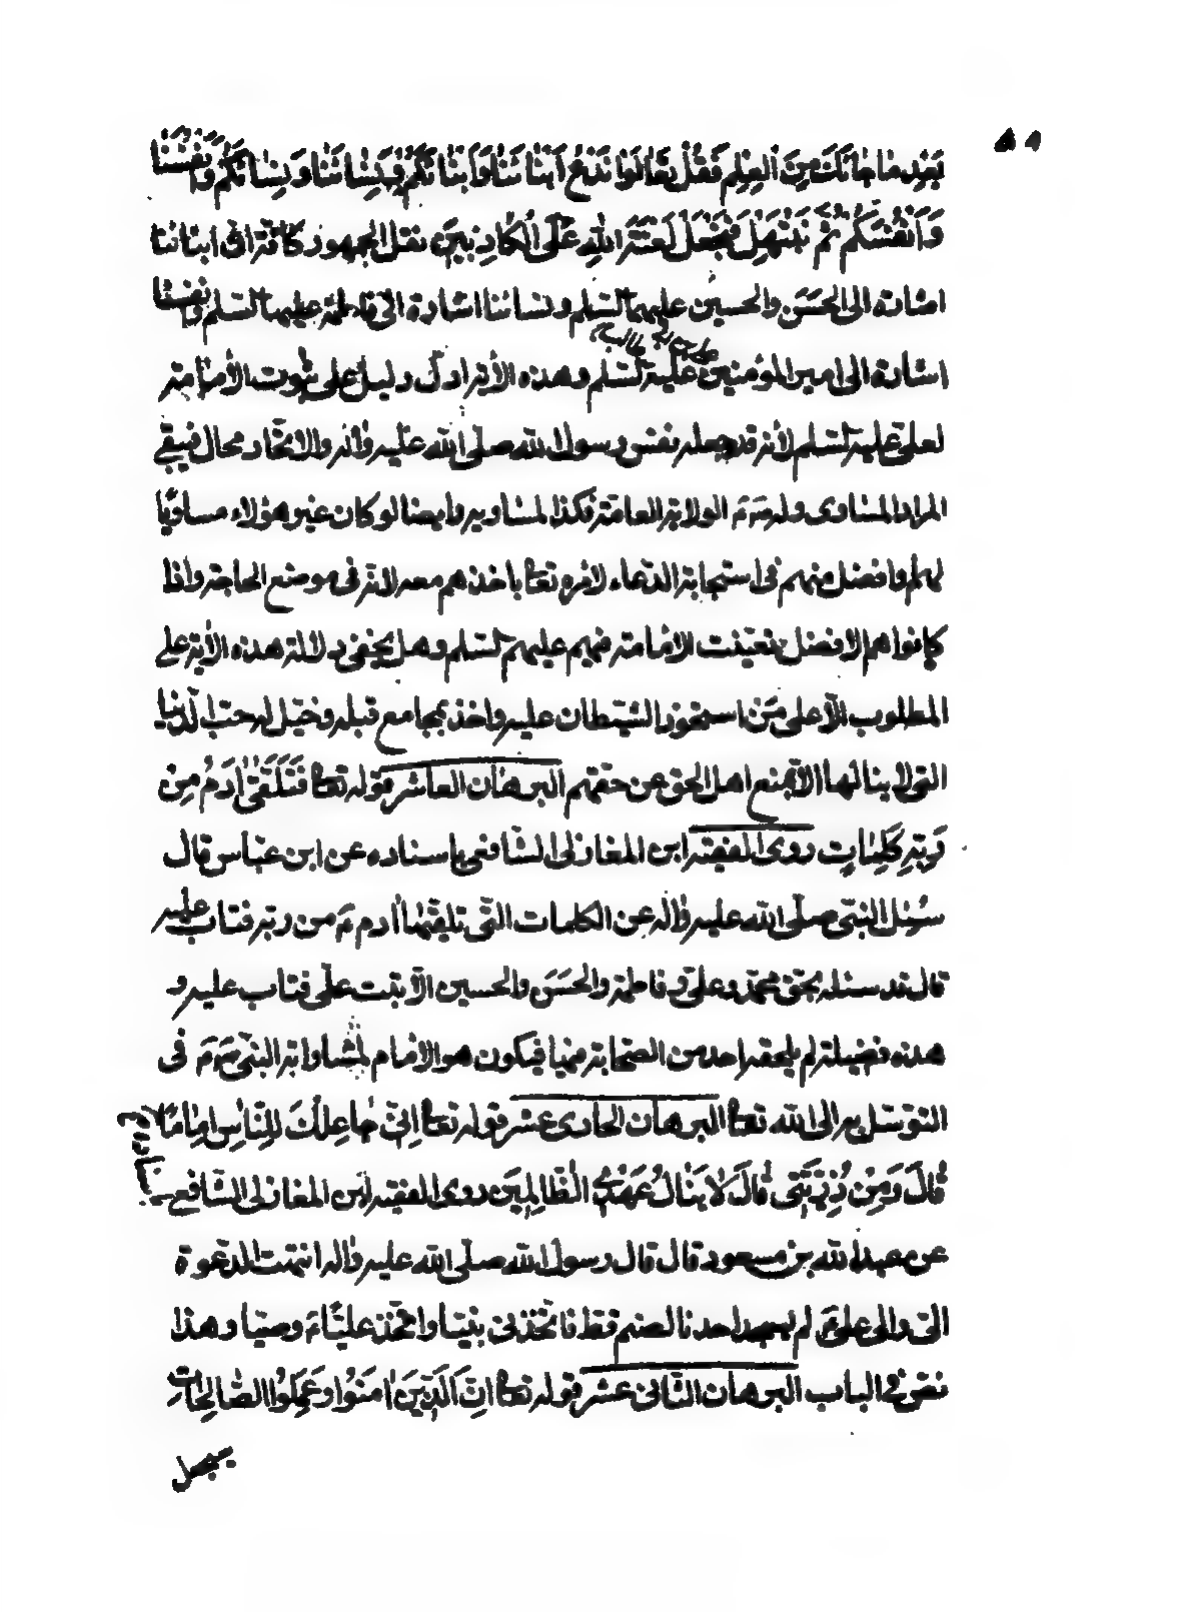 ٥١
بَعْدِ مٰا جٰائَكَ مِنَ الْعِلْمِ فَقُلْ تَعٰالَوْا نَدْعُ اَبْنٰائَنٰا وَاَبْنٰائَكُمْ وَنِسٰائَنٰا وَنِسٰائَكُمْ وَاَنْفُسَنٰا
وَاَنْفُسَكُمْ ثُمَّ نَبْتَهِلْ فَنَجْعَلْ لَعْنَةَ اللهِ عَلَى الْكٰاذِبِينَ نقل الجمهور كافة ان ابنائنا
اشارة الى الحسَن والحسين عليهما السّلم ونسائنا اشارة الى فاطمة عليها السّلم وانفسنا
اشارة الى امير المؤمنين علي بن ابي طالب عليه السّلم وهذه الأية ادلّ دليل على ثبوت الأمامة
لعلى عليه السّلم لأنه قد جعله نفس رسول الله صلّى الله عليه واله والاتّحاد محال فيبقى
المراد المساوى وله صَ مَ الولاية العامّة فكذا لمساويه وايضا لو كان غير هؤلاء مساويًا
لهم وافضل منهم فى استجابة الدّعاء لامره تعا باخذهم معه لانه فى موضع الحاجة واذا
كانوا هم الافضل تعيّنت الامامة فيهم عليهم السّلم وهل يخفى دلالة هذه الأية على
المطلوب الّا على مَن استحوذ الشيطان عليه واخذ بمجامع قبله وخيّل له حبّ الدّنيا
التى لا ينالها الّا بمنع اهل الحق عن حقهم البرهان العاشر قوله تعا فَتَلَقّٰى اٰدَمُ مِنْ
رَبِّهِ كَلِمٰاتٍ روى الفقيه ابن المغازلى الشّافعى باسناده عن ابن عبّاس قال
سُئل النبّى صلّى الله عليه واله عن الكلمات التّى تلقّيها اٰدم عَ من ربّه فتاب عليه
قال قد سئله بحق محمّد وعلىّ وفاطمة والحسَن والحسين الّا تبت علّى فتاب عليه و
هذه فضيلة لم يلحقه احد من الصّحابة فيها فيكون هو الامام لمساواته النبّى صَ مَ فى
التوسّل به الى الله تعا البرهان الحادى عشر قوله تعا اِنّى جٰاعِلُكَ لِلنّٰاسِ اِمٰامًا
قٰالَ وَمِنْ ذُرِّيَّتى قٰالَ لٰا يَنٰالُ عَهْدِى الظّٰالِمِينَ روى الفقيه ابن المغازلى الشّافعى
عن عبد الله بن مسعود قال قال رسول الله صلّى الله عليه واله انتهت الدّعوة
الىّ والى علىّ عَ لم يسجد احدنا لصنم قط فاتّخذنى نبيّا واتّخذ عليّا عَ وصيّا وهذا
نص فى الباب البرهان الثّانى عشر قوله تعا اِنَّ الَّذِينَ اٰمَنُوا وَعَمِلُوا الصّٰالِحٰاتِ
سيجعل